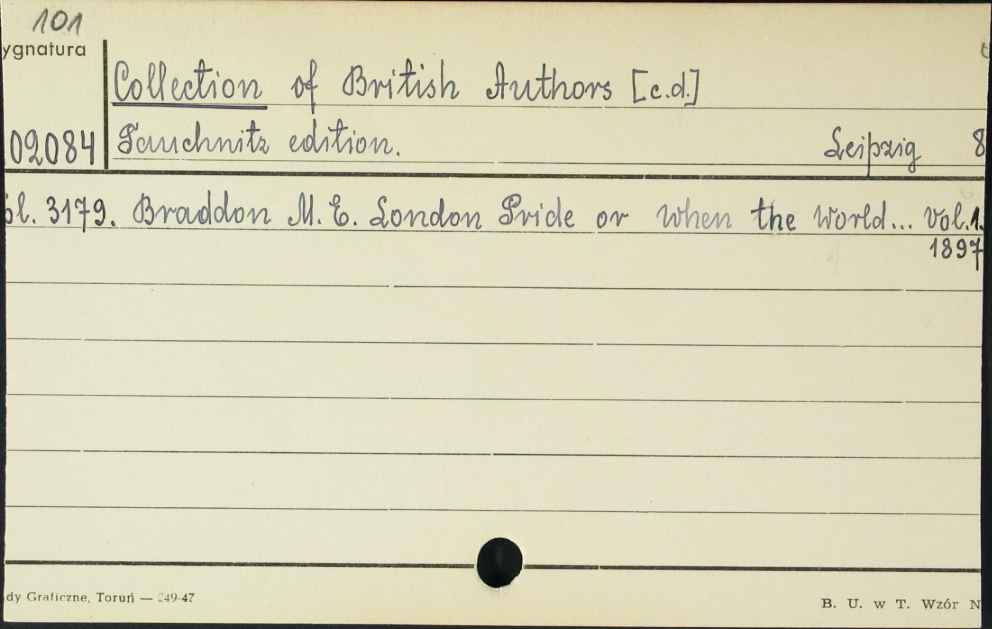 101
ygnatura
Collection of British Authors [c.d.]
02084 Tauchnitz edition. Leipzig 8
ol. 3179. Braddon M. E. London Pride or when the World... vol.1.
1897
dy Graficzne, Toruń — 249-47
B. U. w T. Wzór N